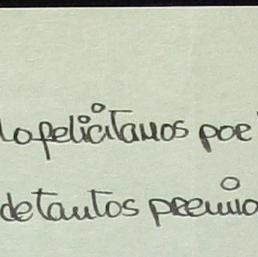 lo felicitamos por
de tantos premio